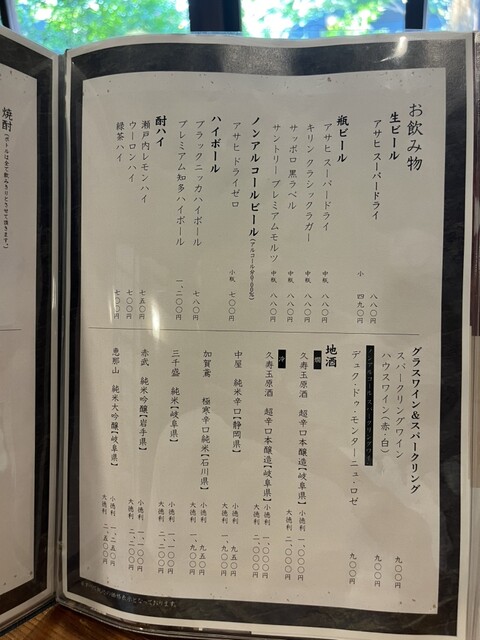 お飲み物
生ビール
アサヒ スーパードライ 八八〇円
小 四九〇円
瓶ビール
アサヒ スーパードライ 中瓶 八八〇円
キリン クラシックラガー 中瓶 八八〇円
サッポロ 黒ラベル 中瓶 八八〇円
サントリー プレミアムモルツ 中瓶 八八〇円
ノンアルコールビール(アルコール分0.00%)
アサヒ ドライゼロ 小瓶 七〇〇円
ハイボール
ブラックニッカハイボール 七八〇円
プレミアム知多ハイボール 一、二〇〇円
酎ハイ
瀬戸内レモンハイ 七五〇円
ウーロンハイ 七〇〇円
緑茶ハイ 七〇〇円
グラスワイン&スパークリング
スパークリングワイン 九〇〇円
ハウスワイン(赤・白) 九〇〇円
ノンアルコールスパークリングワイン
デュク・ドゥ・モンターニュ・ロゼ 九〇〇円
地酒
燗
久寿玉原酒 超辛口本醸造【岐阜県】 小徳利 一、〇〇〇円
大徳利 二、〇〇〇円
冷
久寿玉原酒 超辛口本醸造【岐阜県】 小徳利 一、〇〇〇円
大徳利 二、〇〇〇円
中屋 純米辛口【静岡県】 小徳利 九五〇円
大徳利 一、九〇〇円
加賀鳶 極寒辛口純米【石川県】 小徳利 九五〇円
大徳利 一、九〇〇円
三千盛 純米【岐阜県】 小徳利 一、一〇〇円
大徳利 二、二〇〇円
赤武 純米吟醸【岩手県】 小徳利 一、二〇〇円
恵那山 純米大吟醸【岐阜県】 小徳利 一、二五〇円
大徳利 二、五〇〇円
焼酎